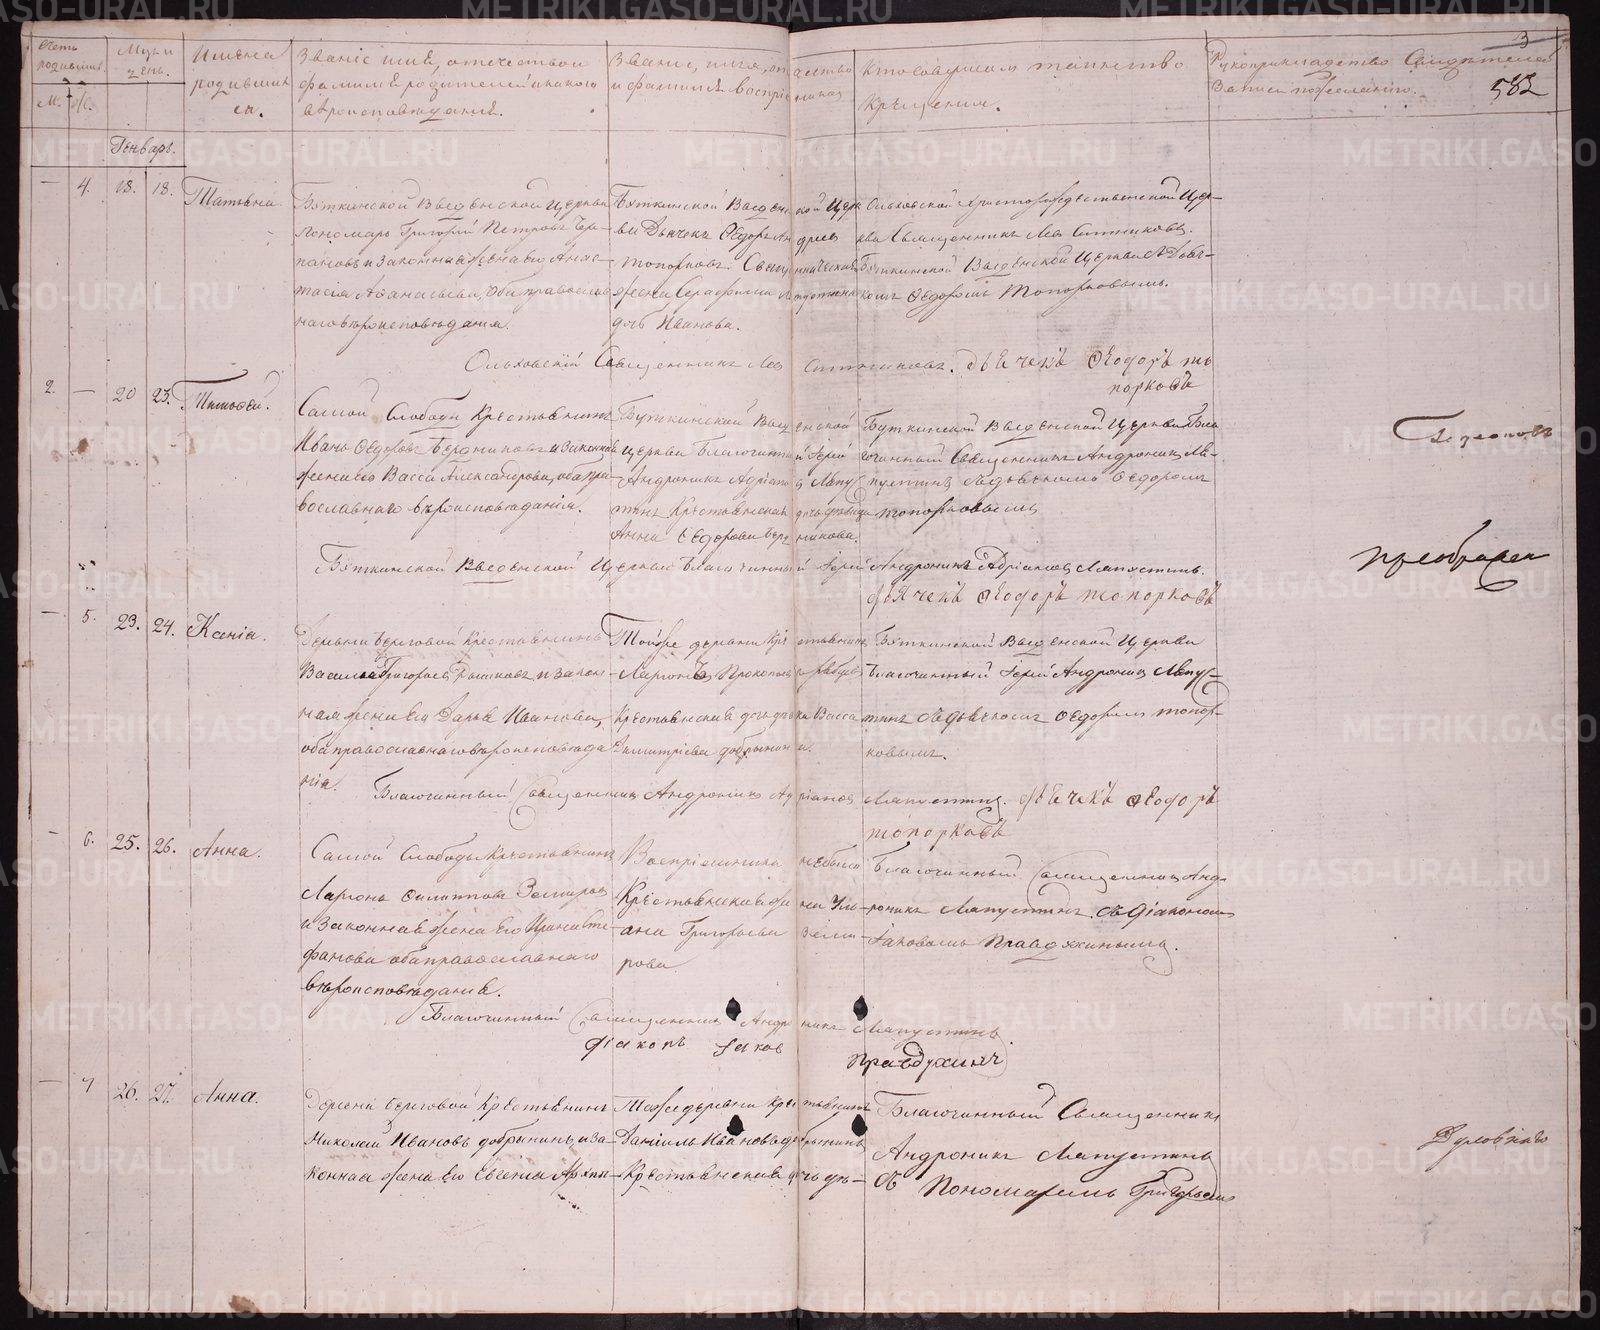 Счетъ родивших.
М. Ж.
Мѣс. и день.
Имена родившихся.
Званіе имя, отечество и фамилія родителей и какого вѣроисповѣданія.
Званіе, имя, отчество и фамилія Воспріемниковъ
Кто совершалъ таинство Крещенія.
Рукоприкладство Свидѣтелей Записи по желанію.
3
582
Генварь.
— 4. 18. 18. Татьяна
Буткинской Введенской Церкви
Пономарь Григорій Петровъ
и законная жена его Анас-
тасія Аѳанасьева, оба православ
наго вѣроисповѣданія.
Буткинской Введенской Церк
ви Дьячекъ Ѳедоръ Андреев
Топорковъ. Священническая
жена Серафима
дочь Иванова.
Ольховской Христорождественской Цер-
кви Священникъ Лев Ситниковъ.
Буткинской Введенской Церкви съ Дьяч-
комъ Ѳедоромъ Топорковымъ.
Ольховскій Священникъ Лев Ситниковъ. дьячекъ Ѳеодоръ то
порковъ
2. — 20 23. Тимоѳей.
Самой Слободы Крестьянинъ
Иванъ Ѳедоровъ Бердниковъ и законная
жена его Васса Александрова, оба пра-
вославнаго вѣроисповѣданія.
Буткинской Введенской
церкви Благочинный Іерей
Андроникъ Адріановъ Лапус
тинъ Крестьянская дочь девица
Анна Ѳедорова Бердникова.
Буткинской Введенской Церкви Бла
гочинный Священникъ Андроникъ Ла-
пустинъ съ дьячкомъ Ѳедоромъ
топорковымъ
Буткинской Введенской Церкви Благочинный Іерей Андроникъ Адріановъ Лапустинъ.
дьячекъ Ѳеодоръ топорковъ
преображен
— 5. 23. 24. Ксенія.
Деревни Береговой Крестьянинъ
Василій Григорьевъ и закон-
ная жена его Дарья Иванова,
оба православнаго вѣроисповѣда
нія.
Той же деревни Крестьянинъ
Ларіонъ Прокопьевъ
Крестьянская дочь девка Васса
Димитріева Добрынина.
Буткинской Введенской Церкви
Благочинный Іерей Андроникъ Лапус-
тинъ съ дьячкомъ Ѳедоромъ топор-
ковымъ.
Благочинный Священникъ Андроникъ Адріановъ Лапустинъ. дьячекъ Ѳеодоръ
топорковъ
— 6. 25. 26. Анна.
Самой Слободы Крестьянинъ
Ларіонъ Филиппов
и законная жена его Ирина Сте-
фанова оба православнаго
вѣроисповѣданія.
Воспріемника небыло
Крестьянская
Григорьева
рова
Благочинный Священникъ Анд-
роникъ Лапустинъ съ Діакономъ
Іаковомъ Правдухинымъ.
Благочинный Священникъ Андроникъ Лапустинъ
діаконъ Іаковъ Правдухинъ
— 7 26. 27. Анна.
Деревни Береговой Крестьянинъ
Николай Ивановъ Добрынинъ, и за-
конная жена его Евгенія Архип-
Тойже деревни Крестьянинъ
Даніилъ Ивановъ Добрынинъ
Крестьянская дочь дѣ-
Благочинный Священникъ
Андроникъ Лапустинъ
съ Пономаремъ Григорьемъ
METRIKI.GASO-URAL.RU